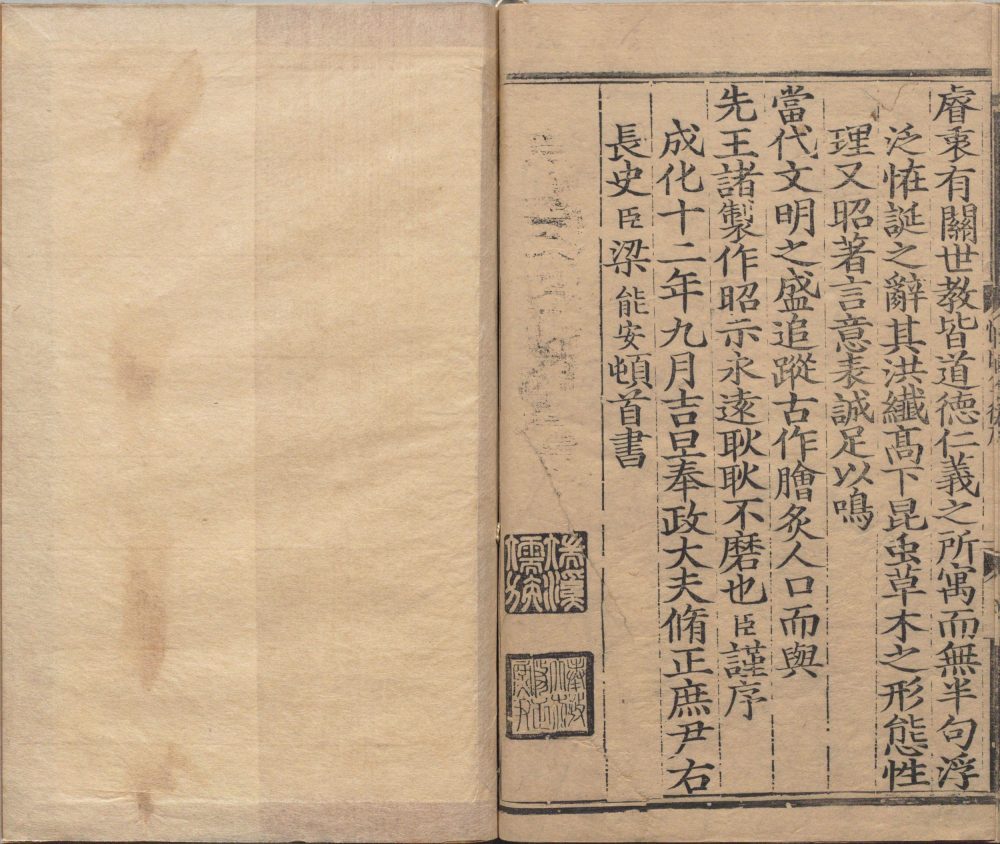 睿衷有關世教皆道德仁義之所寓而無半句浮
泛恠誕之辭其洪纖髙下昆虫草木之形態性
理又昭著言意表誠足以鳴
當代文明之盛追蹤古作膾炙人口而與
先王諸製作昭示永遠耿耿不磨也臣謹序
成化十二年九月吉旦奉政大夫脩正庶尹右
長史臣梁能安頓首書